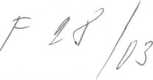 F 28/03